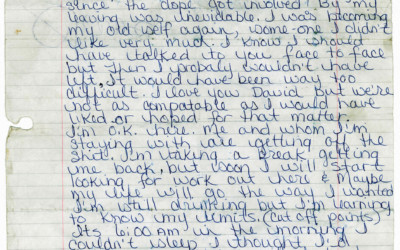 since the dope got involved! By my
leaving was inevidable. I was becoming
my old self again, some-one I didn't
like very much. I know I should
have talked to you face to face
but then I probly wouldn't have
left. It would have been way too
difficult. I love you David but we're
not as compatable as I would have
liked or hoped for that matter.
I'm O.K. here. Me and whom I'm
staying with are getting off the
shit. I'm taking a break getting
me back, but soon I will start
looking for work out here & Maybe
my life will go the way I wanted
I'm still drinking but I'm learning
to know my limits. (cut off points)
Its 6:00 AM in the morning I
couldn't sleep I thought